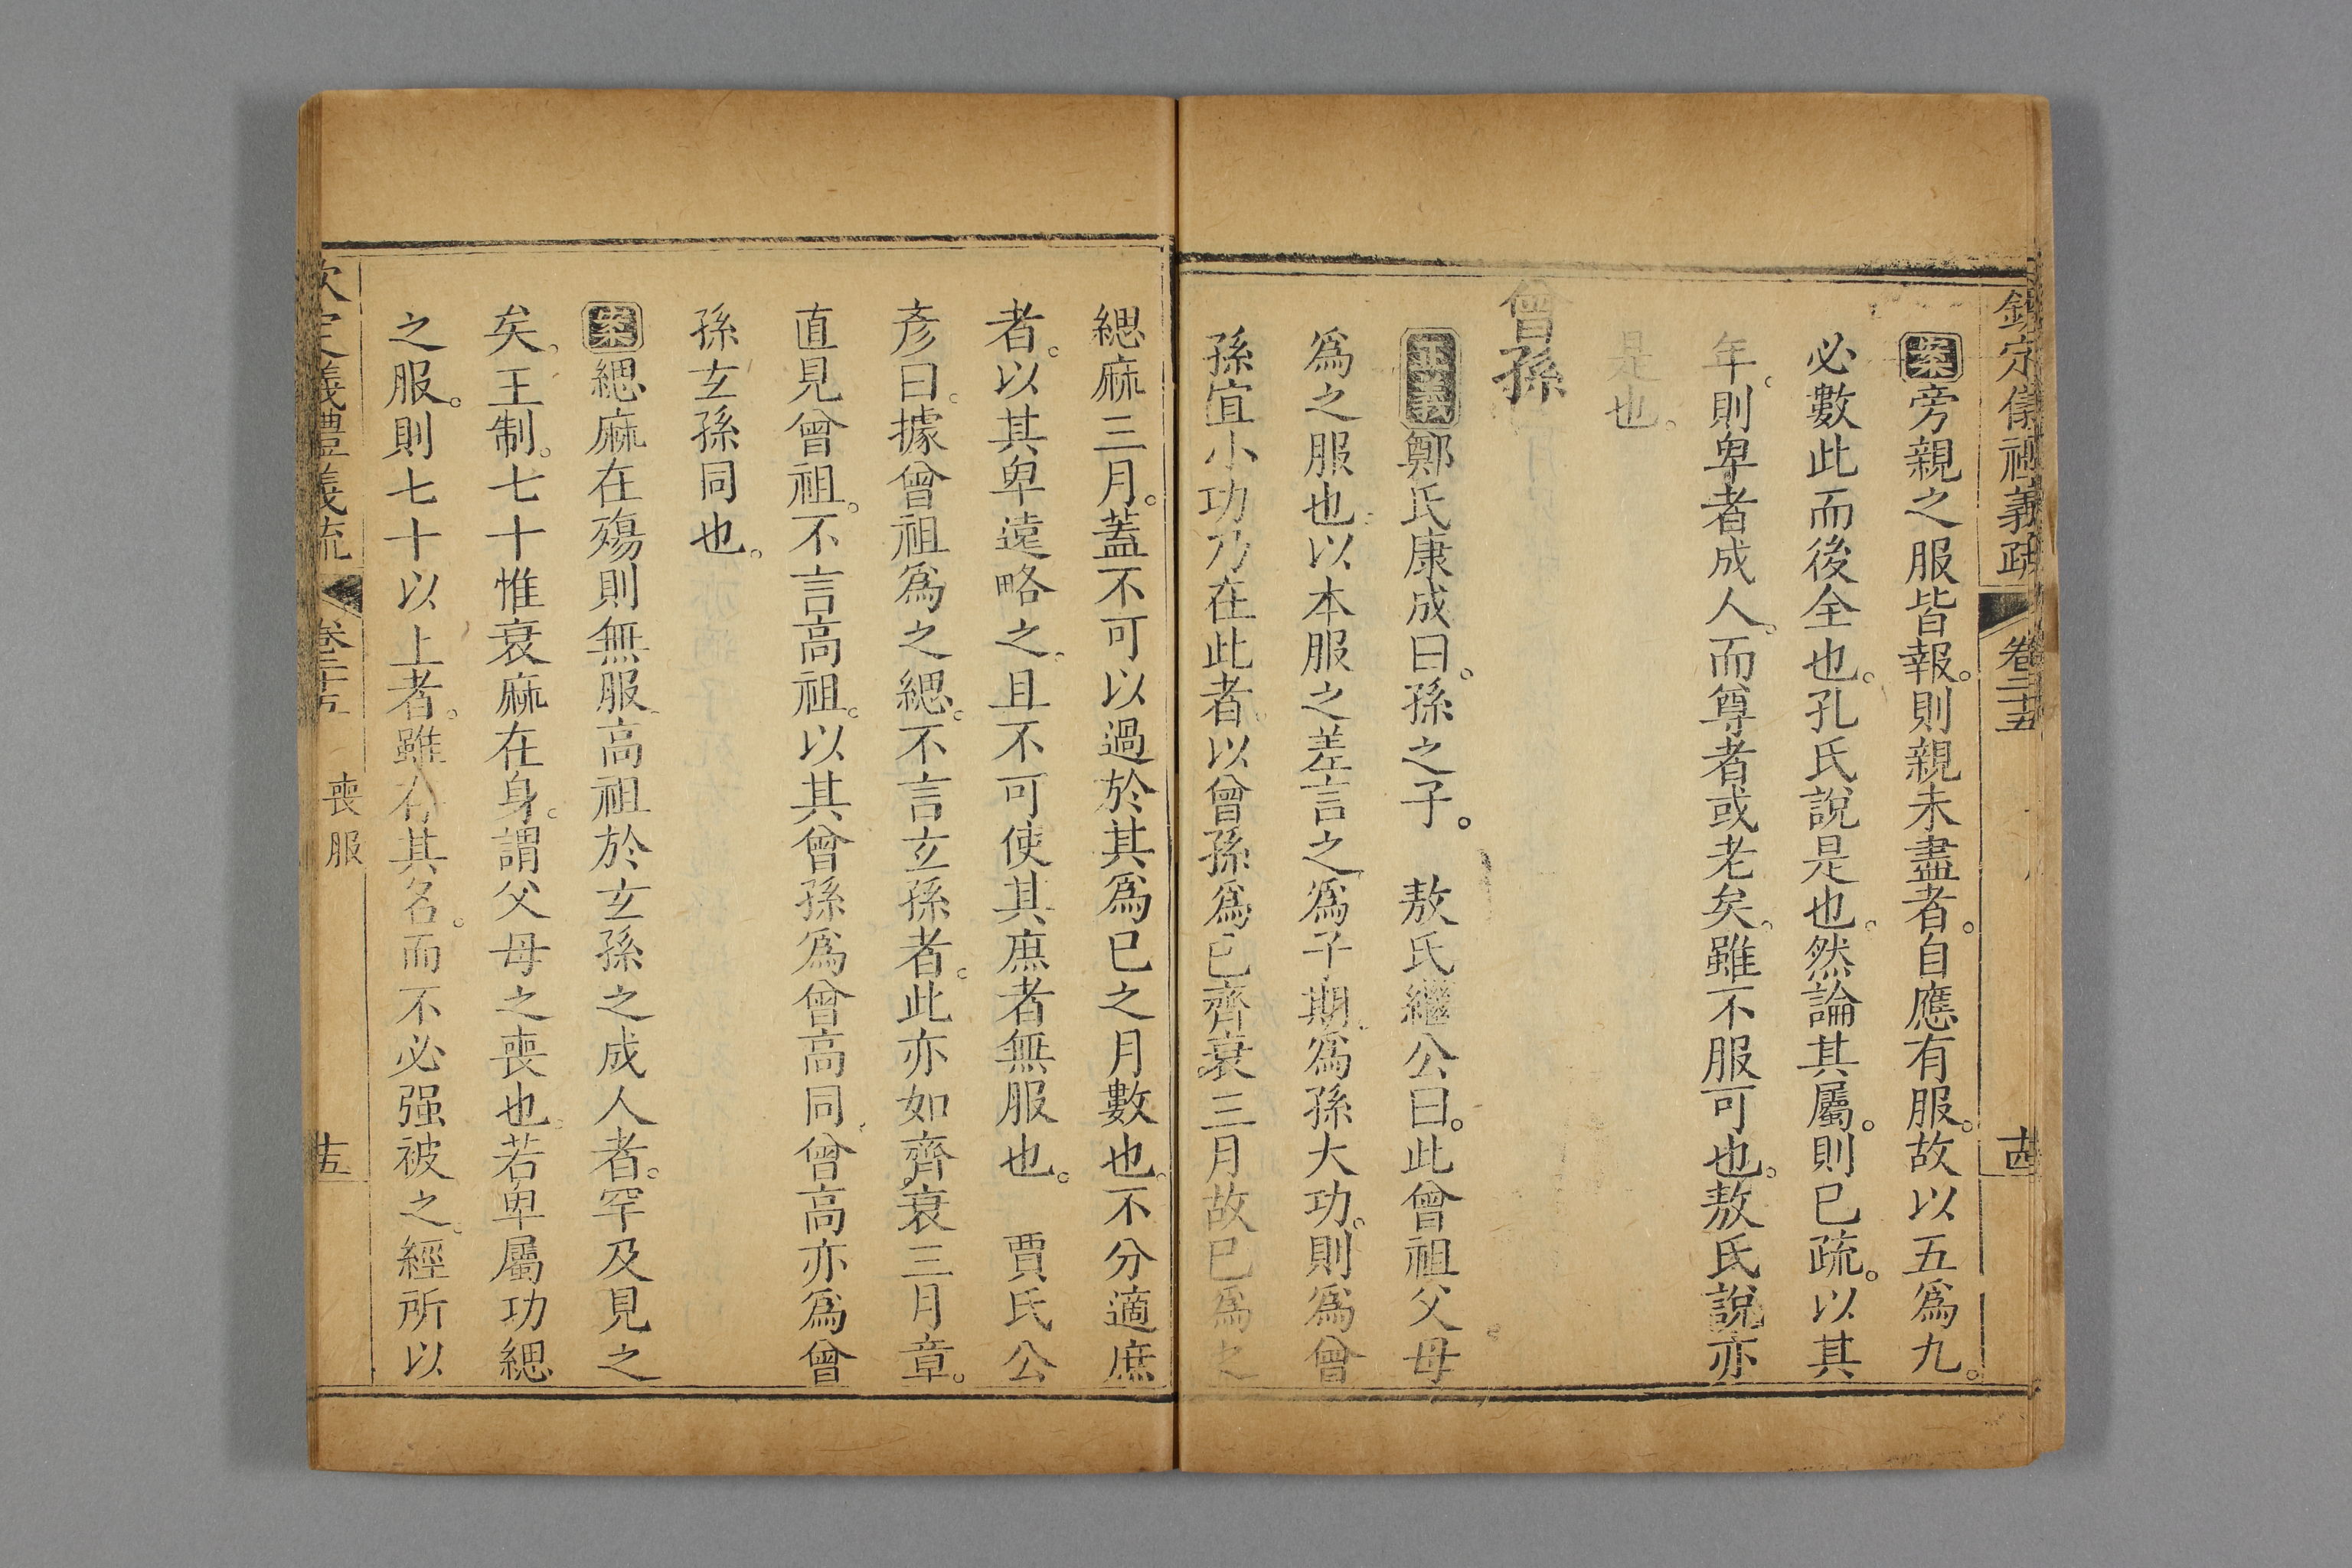 欽定儀禮義疏 卷二十五 十四
案旁親之服皆報。則親未盡者。自應有服。故以五爲九。
必數此而後全也。孔氏說是也。然論其屬。則已疏。以其
年。則卑者成人。而尊者或老矣。雖不服可也。敖氏說亦
是也。
曾孫
正義鄭氏康成曰。孫之子。 敖氏繼公曰。此曾祖父母
爲之服也。以本服之差言之。爲子期。爲孫大功。則爲曾
孫宜小功。乃在此者。以曾孫爲已齊衰三月。故已爲之
緦麻三月。蓋不可以過於其爲已之月數也。不分適庶
者。以其卑遠略之。且不可使其庶者無服也。 賈氏公
彥曰。據曾祖爲之緦。不言玄孫者。此亦如齊衰三月章。
直見曾祖。不言高祖。以其曾孫爲曾高同。曾高亦爲曾
孫玄孫同也。
案緦麻在殤則無服。高祖於玄孫之成人者。罕及見之
矣。王制。七十惟衰麻在身。謂父母之喪也。若卑屬功緦
之服。則七十以上者。雖有其名。而不必强被之。經所以
欽定義禮義疏 卷二十五 喪服 十五